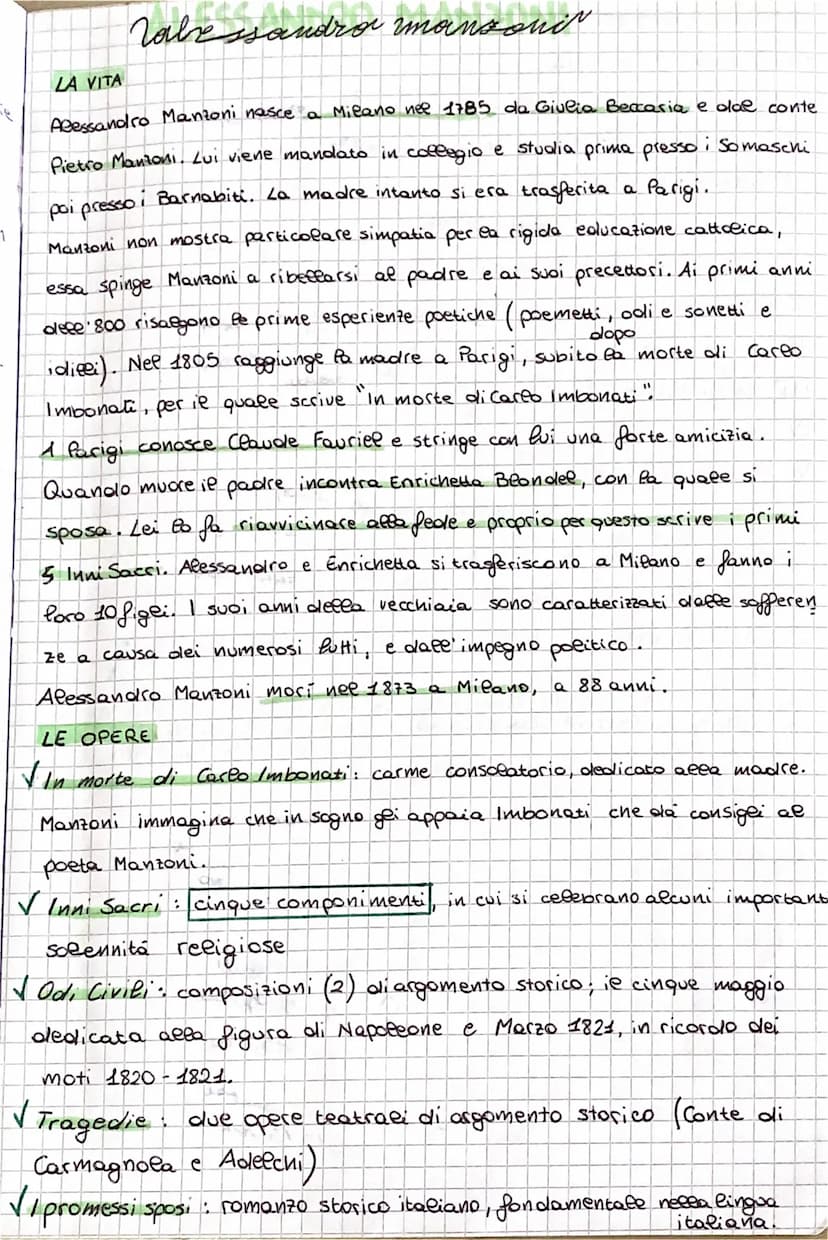 Alessandro Manzoni
LA VITA
Alessandro Manzoni nasce a Milano nel 1785 da Giulia Beccaria e dal conte
Pietro Manzoni. Lui viene mandato in collegio e studia prima presso i Somaschi
poi presso i Barnabiti. La madre intanto si era trasferita a Parigi.
Manzoni non mostra particolare simpatia per la rigida educazione cattolica,
essa spinge Manzoni a ribellarsi al padre e ai suoi precettori. Ai primi anni
dell'800 risalgono le prime esperienze poetiche (poemetti, odi e sonetti e
idilli). Nel 1805 raggiunge la madre a Parigi, subito dopo la morte di Carlo
Imbonati, per il quale scrive "In morte di Carlo Imbonati".
A Parigi conosce Claude Fauriel e stringe con lui una forte amicizia.
Quando muore il padre incontra Enrichetta Blondel, con la quale si
sposa. Lei lo fa riavvicinare alla fede e proprio per questo scrive i primi
5 Inni Sacri. Alessandro e Enrichetta si trasferiscono a Milano e fanno i
loro 10 figli. I suoi anni della vecchiaia sono caratterizzati dalle sofferen
ze a causa dei numerosi lutti, e dall'impegno politico.
Alessandro Manzoni morì nel 1873 a Milano, a 88 anni.
LE OPERE
√ In morte di Carlo Imbonati: carme consolatorio, dedicato alla madre.
Manzoni immagina che in sogno gli appaia Imbonati che dà consigli al
poeta Manzoni.
√ Inni Sacri: cinque componimenti, in cui si celebrano alcuni important
solennità religiose
√ Odi Civili: composizioni (2) di argomento storico; il cinque maggio
dedicata alla figura di Napoleone e Marzo 1821, in ricordo dei
moti 1820-1821.
√ Tragedie: due opere teatrali di argomento storico (Conte di
Carmagnola e Adelchi)
√ I promessi sposi: romanzo storico italiano, fondamentale nella lingua
italiana.